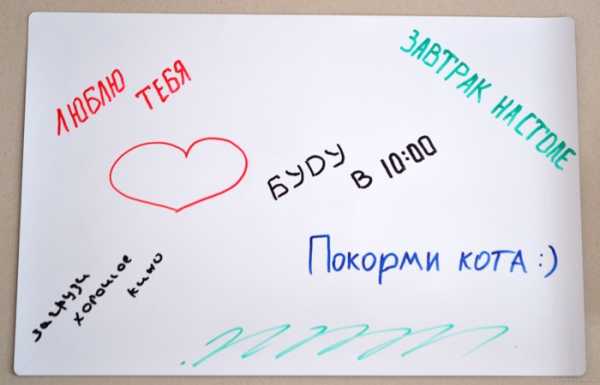 ЛЮБЛЮ
ТЕБЯ
ЗАВТРАК НА СТОЛЕ
БУДУ
В 10:00
Покорми кота :)
загрузи
хорошое
кино